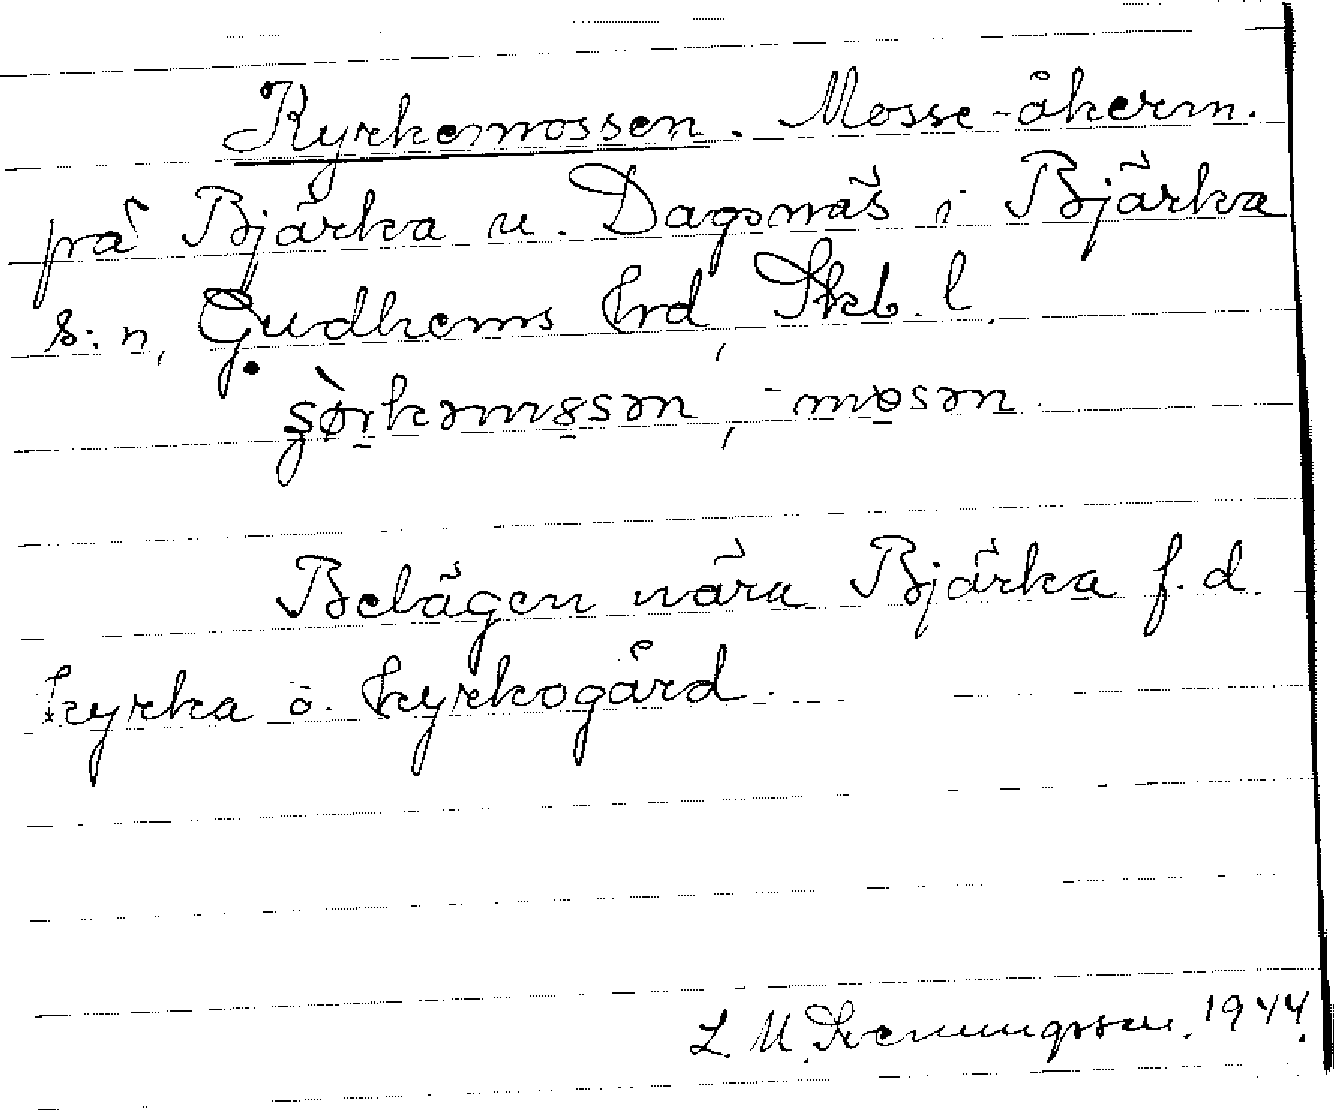 Kyrkemossen. Mosse-åkerm.
på Bjärka u. Dagsnäs i Bjärka
s:n, Gudhems hrd, Skb. l.
Belägen nära Bjärka f.d.
kyrka o. kyrkogård.
L. M. Svenungsson. 1944.